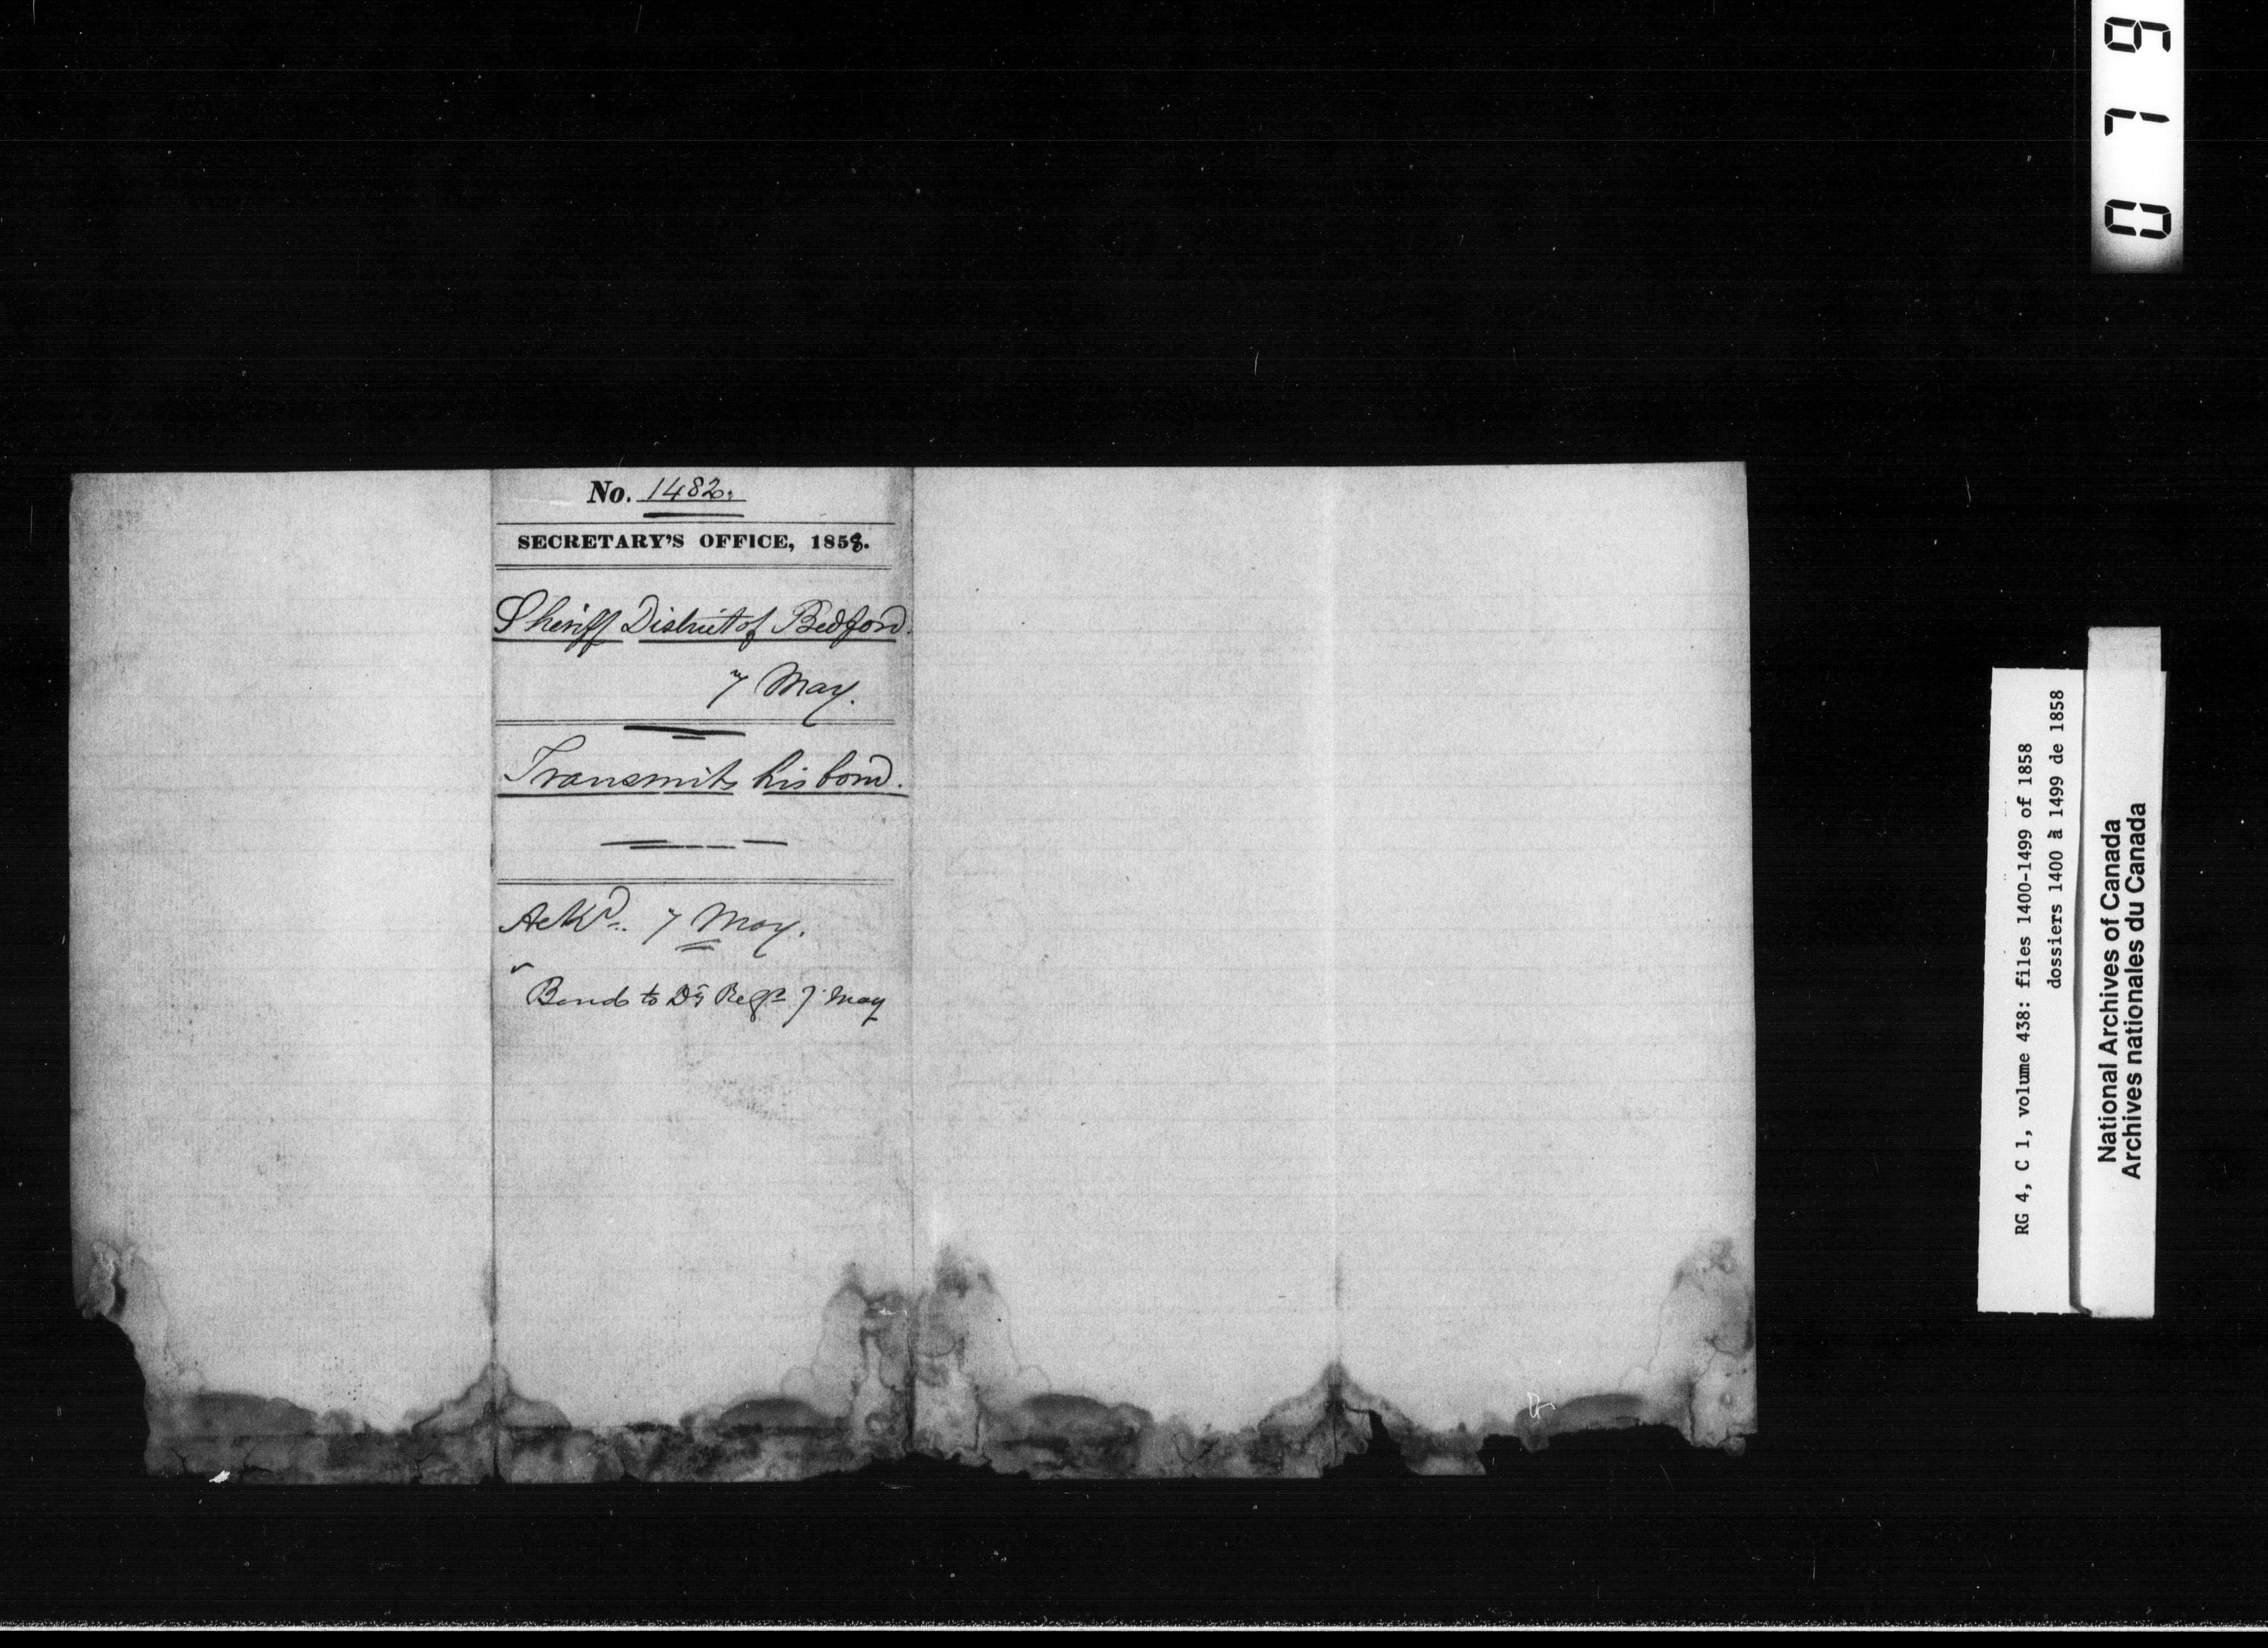 No. 1482.
SECRETARY'S OFFICE, 1858.
Sheriff District of Bedford.
7 May.
Transmits his bond.
Ackd. 7 May.
Bonds to Dy Regr 7 May
0719
RG 4, C 1, volume 438: files 1400-1499 of 1858
dossiers 1400 à 1499 de 1858
National Archives of Canada
Archives nationales du Canada